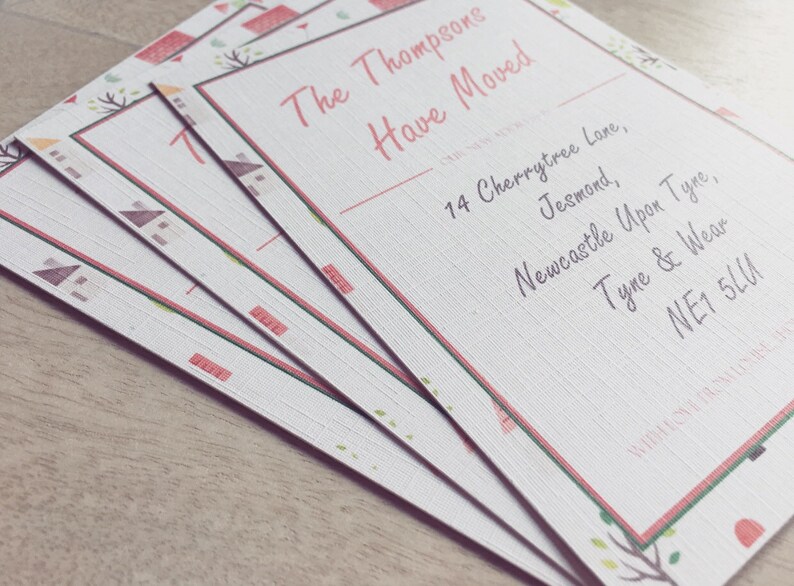 The Thompsons
Have Moved
OUR NEW ADDRESS
14 Cherrytree Lane,
Jesmond,
Newcastle Upon Tyne,
Tyne & Wear
NE1 5LU
WITH LOVE FROM
T